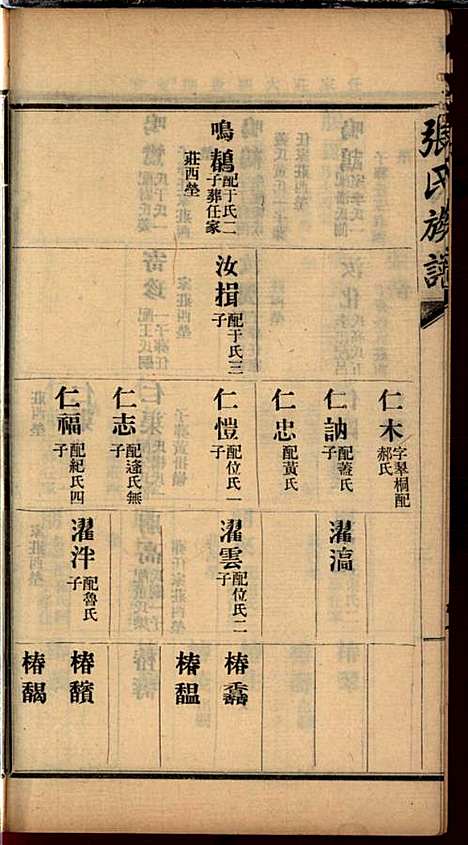 張氏族譜
鳴鶄 配于氏二子葬任家莊西塋
汝揖 配于氏三子
仁木 字翠桐配郝氏
仁訥 配蓋氏子
仁忠 配黃氏
仁愷 配位氏一子
仁志 配逄氏無子
仁福 配紀氏四子
濯滈
濯雲 配位氏二子
濯泮 配魯氏子
椿馫
椿馧
椿馪
椿馤